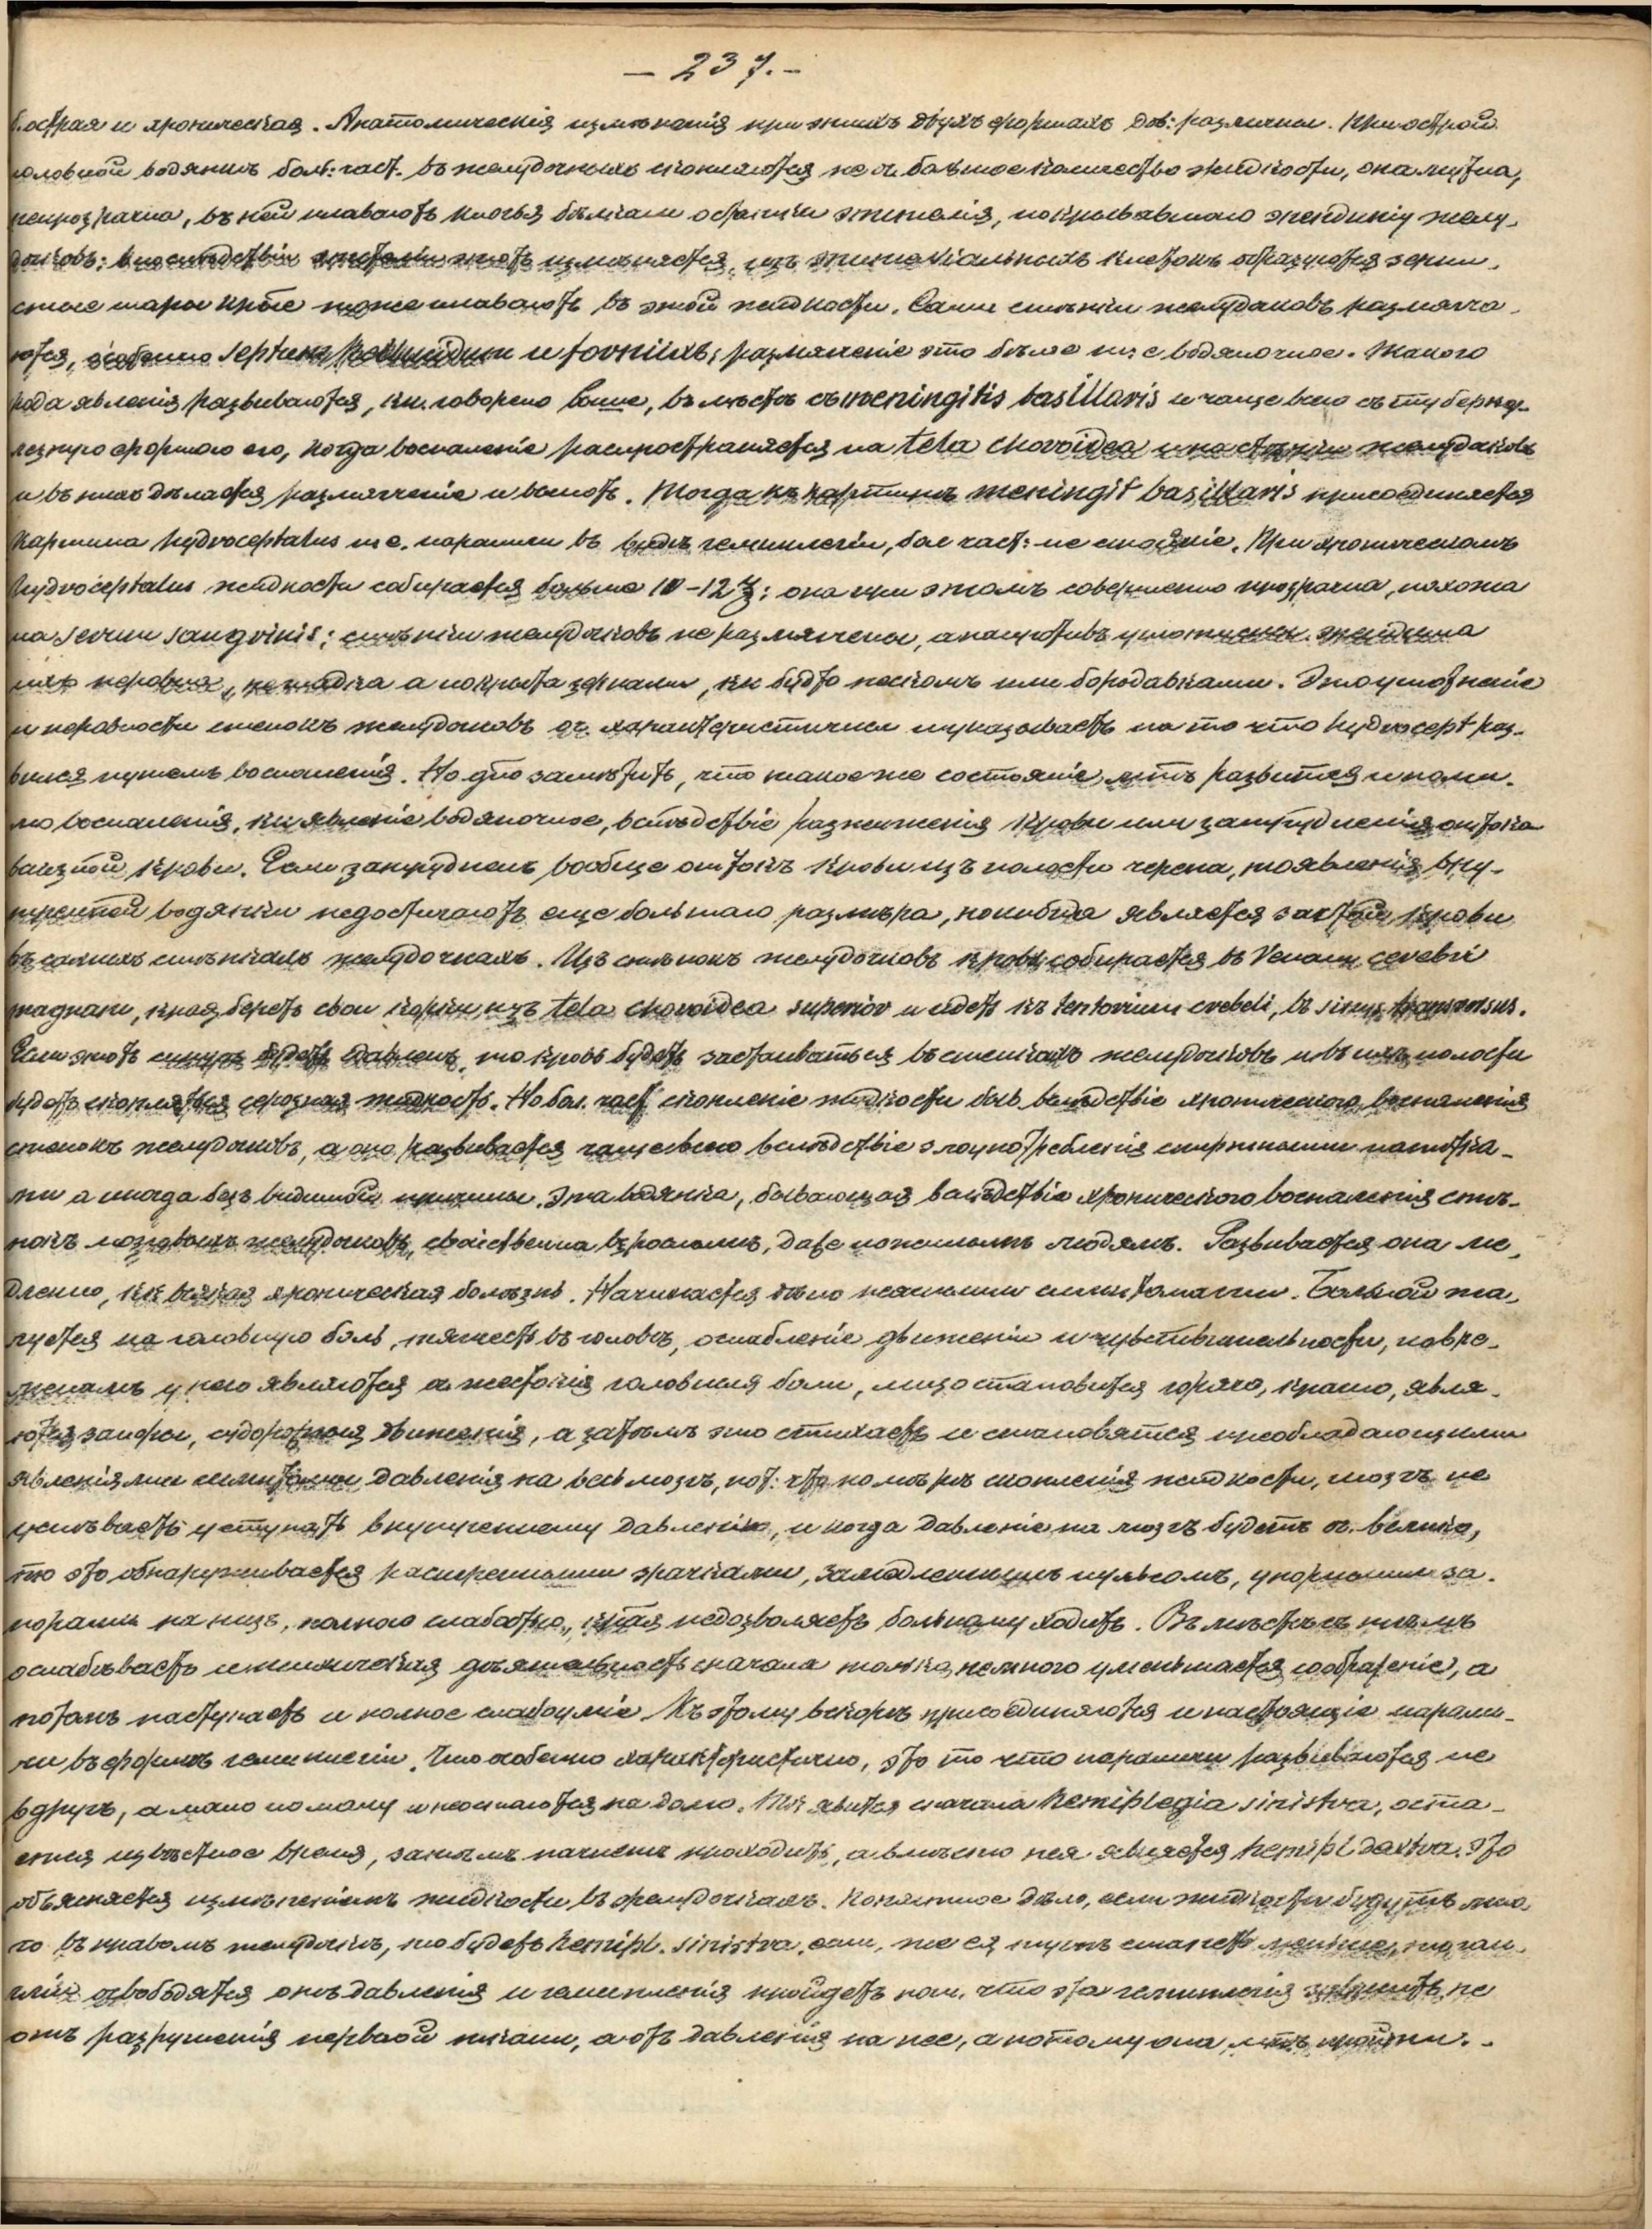 – 237. –
острая и хроническая. Анатомическія измѣненія при этихъ двухъ формахъ дов: различны. При острой
головной водянкѣ больш: част. въ желудочкахъ скопляется не оч. большое количество жидкости, она мутна,
непрозрачна, въ ней плаваютъ клочья бѣлка и остатки эпителія, покрывавшаго эпендимію желу-
дочковъ; впослѣдствіи эпителій этотъ измѣняется, изъ эпителіальныхъ клѣтокъ образуются зерни-
стые шары кои тоже плаваютъ въ этой жидкости. Сами стѣнки желудочковъ размягча-
ются, особенно septum pellucidum и fornixъ; размягченіе это бѣлое т. е. водяночное. Такого
рода явленія развиваются, кк. говорено выше, вмѣстѣ съ meningitis basillaris и чаще всего съ туберку-
лезную формою его, когда воспаленіе распространяется на tela choroidea и на стѣнки желудочковъ
и въ нихъ дѣлается размягченіе и выпотъ. Тогда къ картинѣ meningit basillaris присоединяется
картина hydrocephalus т. е. параличи въ видѣ гемиплегіи, бол. част: не стойкіе. При хроническомъ
hydrocephalus жидкости собирается больше 10 – 12 ℥; она при этомъ совершенно прозрачна, похожа
на serum sanguinis; стѣнки желудочковъ не размягчены, а напротивъ уплотнены. эпендима
ихъ неровна, не гладка а покрыта зернами, кк будто пескомъ или бородавками. Это уплотненіе
и неровности стѣнокъ желудочковъ оч. характеристичны и указываетъ на то что hydroceph раз-
вился путемъ воспаленія. Но д҃но замѣтить, что такое же состояніе м҃тъ развиться и поми-
мо воспаленія, кк явленіе водяночное, вслѣдствіе разжиженія крови или затрудненія оттока
венозной крови. Если затрудненъ вообще оттокъ крови изъ полости черепа, то явленія вну-
тренней водянки недостигаютъ еще большаго размѣра, пока не является застой крови
въ самихъ стѣнкахъ желудочкахъ. Изъ стѣнокъ желудочковъ кровь собирается въ Venam cerebri
magnam, к҃рая беретъ свои корни изъ tela choroidea superior и идетъ къ tentorium crebeli, въ sinus transversus.
Если этотъ синусъ будетъ сдавленъ, то кровь будетъ застаиваться въ стѣнкахъ желудочковъ и въ ихъ полости
будетъ скопляться серозная жидкость. Но бол. част скопленіе жидкости быв. вслѣдствіе хроническаго воспаленія
стѣнокъ желудочковъ, а оно развивается чаще всего вслѣдствіе злоупотребленія спиртными напитка-
ми а иногда безъ видимой причины. Эта водянка, бывающая вслѣдствіе хроническаго воспаленія стѣ-
нокъ мозговыхъ желудочковъ, свойственна взрослымъ, даже пожилымъ людямъ. Развивается она ме-
дленно, кк всякая хроническая болѣзнь. Начинается она неясными симптомами. Больной жа-
луется на головную боль, тяжесть въ головѣ, ослабленіе движеніи и чувствительности, по вре-
менамъ у него являются и жестокія головныя боли, лицо становится горячо, красно, явля-
ются запоры, судорожныя движенія, а затѣмъ это стихаетъ и становятся преобладающими
явленіями симптомы давленія на весь мозгъ, пот: что по мѣрѣ скопленія жидкости, мозгъ не
успѣваетъ уступать внутреннему давленію, и когда давленіе на мозгъ будетъ оч. велико,
то это обнаруживается расширенными зрачками, замедленнымъ пульсомъ, упорными за-
порами на низъ, полною слабостью, к҃рая недозволяетъ больному ходить. Вмѣстѣ съ тѣмъ
ослабѣваетъ и психическая дѣятельность сначала только немного уменьшается соображеніе, а
потомъ наступаетъ и полное слабоуміе. Къ этому вскорѣ присоединяются и настоящіе парали-
чи въ формѣ гемиплегіи. Что особенно характеристично, это то что параличи развиваются не
вдругъ, а мало по малу и неостаются на долго. Такъ явится сначала hemiplegia sinistra, оста-
ется извѣстное время, затѣмъ начнетъ проходить, а вмѣсто нея явится hemipl. dextra. Это
объясняется измѣненіемъ жидкости въ желудочкахъ. Понятное дѣло, если жидкости будетъ мно-
го въ правомъ желудочкѣ, то будетъ hemipl. sinistra, если, же ея тутъ станетъ меньше, то ган-
гліи освободятся отъ давленія и гемиплегія пройдетъ пот. что эта гемиплегія зависитъ не
отъ разрушенія нервной ткани, а отъ давленія на нее, а потому она м҃тъ пройти. -